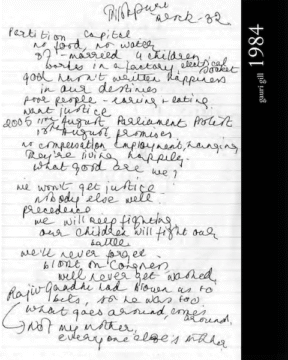 Tilakpuri
Partition Capital
no food, no water
married 4 children
works in a factory, electrical
socket
god hasn't written happiness
in our destinies
poor people - earning & eating.
want justice
2005 11th August Parliament Protest
10th August promises.
no compensation, employment, hanging
They're living happily.
what good are we?
we won't get justice
nobody else will.
precedence
we will keep fighting
our children will fight our
battle
we'll never forget.
blot on Congress
will never get washed,
Rajiv Gandhi had blown us to
bits, so he was too
what goes around, comes
around.
Not my mother,
everyone else's mother
1984
gauri gill